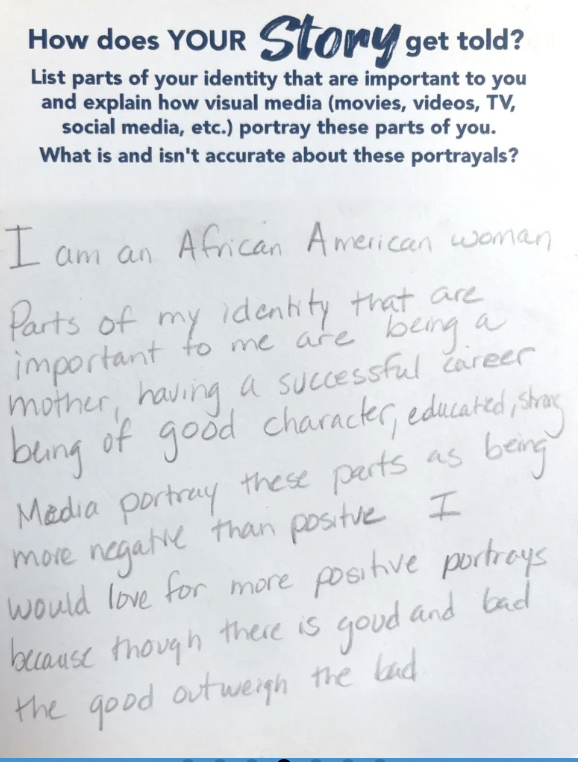 How does YOUR Story get told?
List parts of your identity that are important to you
and explain how visual media (movies, videos, TV,
social media, etc.) portray these parts of you.
What is and isn't accurate about these portrayals?
I am an African American woman
Parts of my identity that are
important to me are being a
mother, having a successful career
being of good character, educated, strong
Media portray these parts as being
more negative than positive I
would love for more positive portrays
because though there is good and bad
the good outweigh the bad